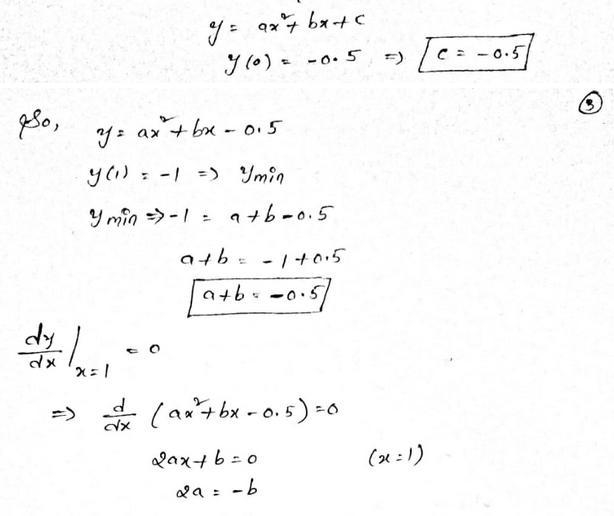 y = ax² + bx + c
y(0) = -0.5 => c = -0.5
③
So, y = ax² + bx - 0.5
y(1) = -1 => ymin
ymin => -1 = a + b - 0.5
a + b = -1 + 0.5
a + b = -0.5
dy/dx |x=1 = 0
=> d/dx (ax² + bx - 0.5) = 0
2ax + b = 0 (x = 1)
2a = -b